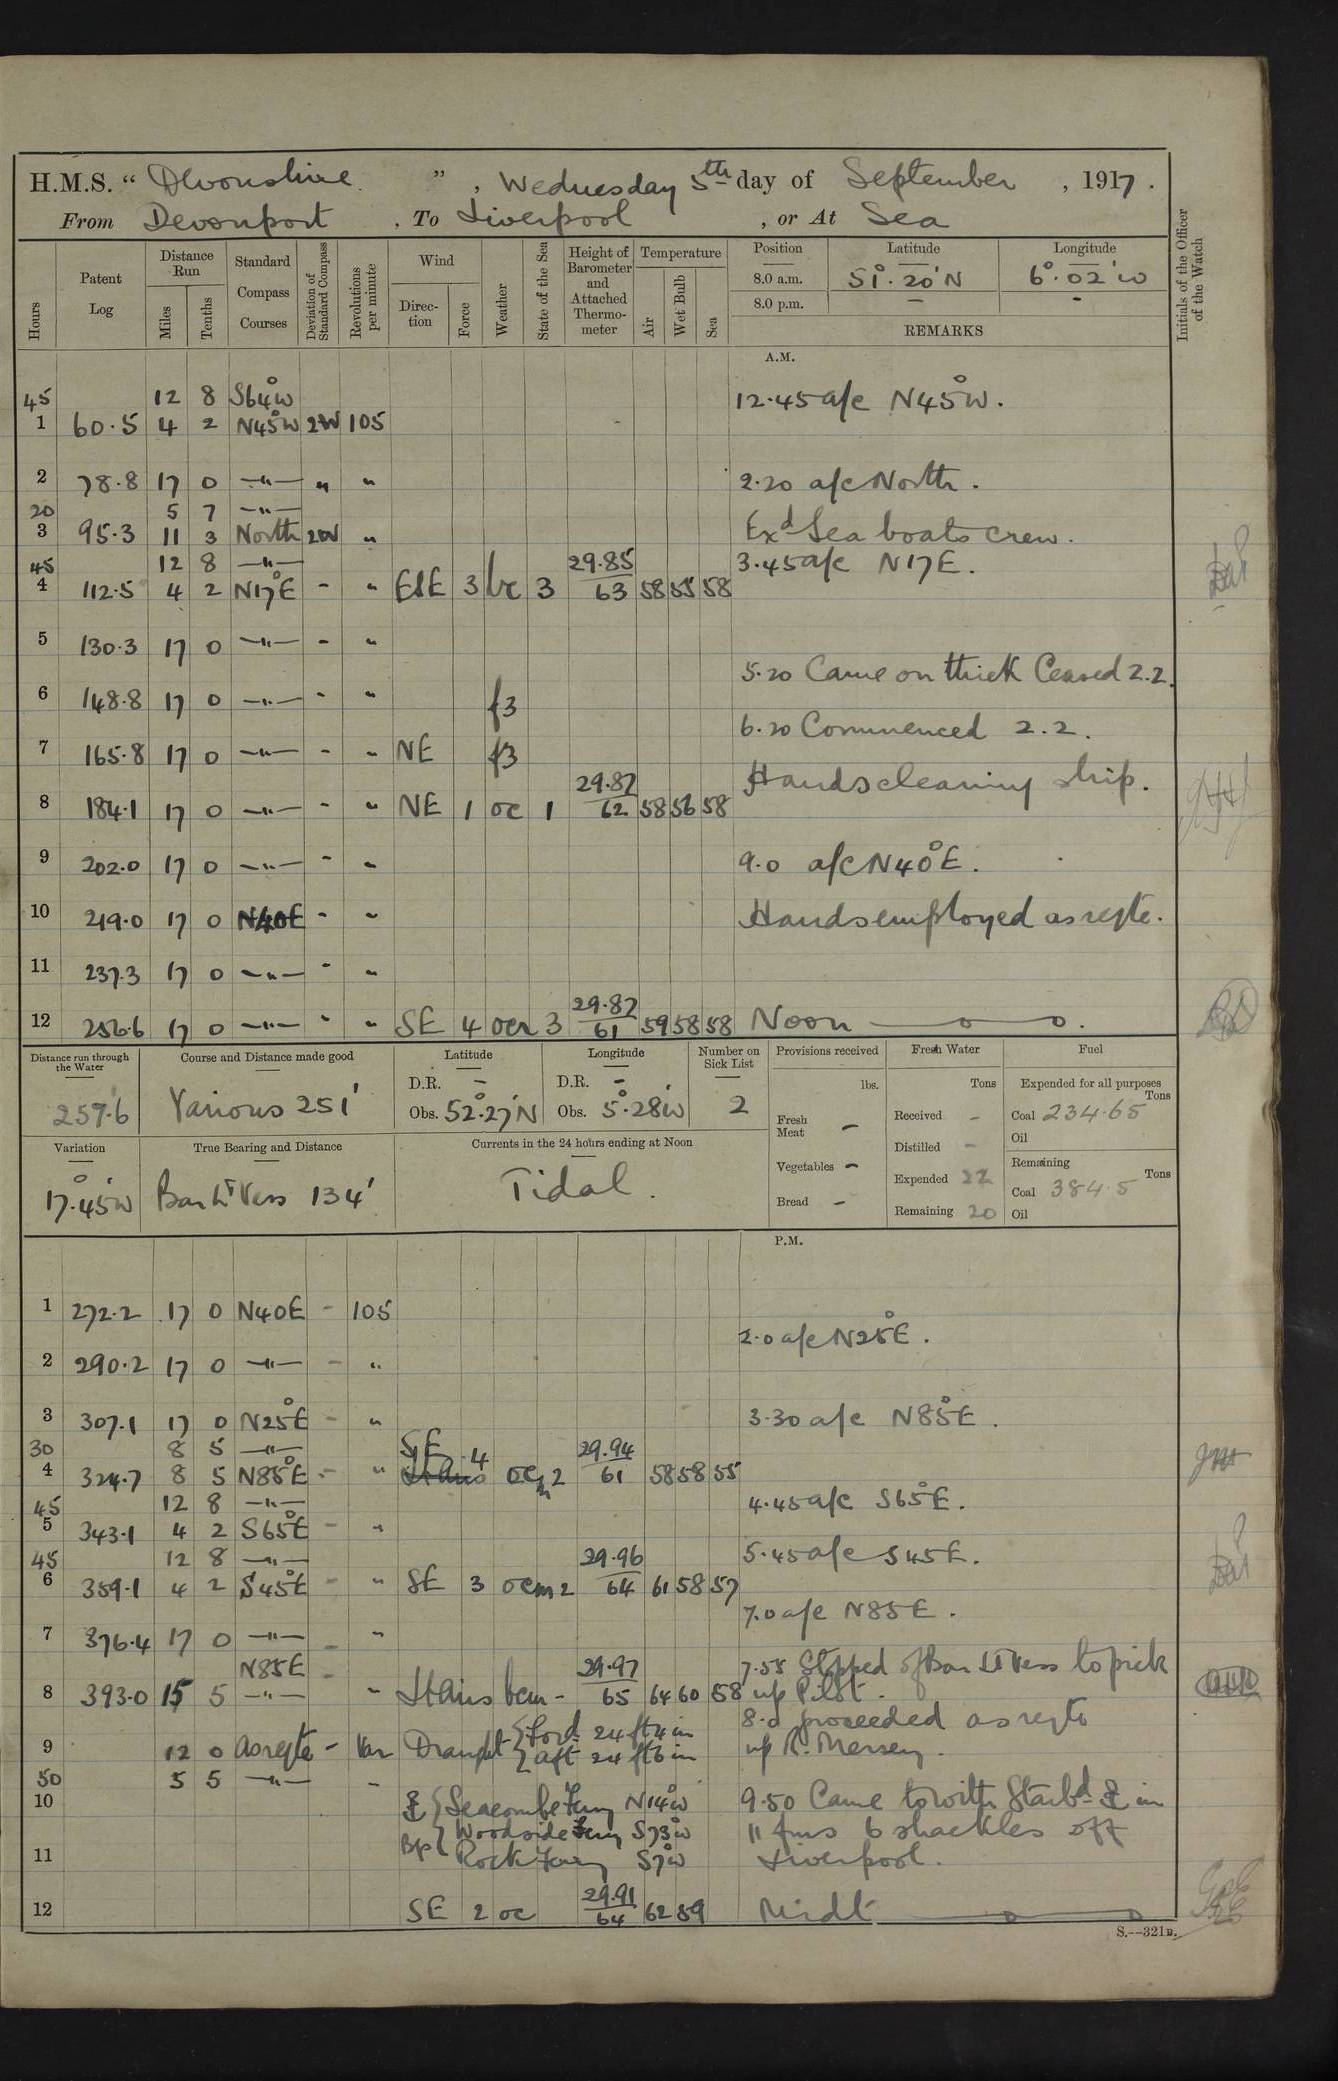 H.M.S. “ Devonshire ” , Wednesday 5th day of September , 1917 .
From Devonport , To Liverpool , or At Sea
Hours Patent Log Distance Run Miles Tenths Standard Compass Courses Deviation of Standard Compass Revolutions per minute Wind Direc-tion Force Weather State of the Sea Height of Barometer and Attached Thermo-meter Temperature Air Wet Bulb Sea Position Latitude Longitude Initials of the Officer of the Watch
8.0 a.m. 51°.20'N 6°.02'W
8.0 p.m. - -
REMARKS
A.M.
45 12 8 S64°W 12.45 a/c N45°W.
1 60.5 4 2 N45°W 2W 105
2 78.8 17 0 —"— " " 2.20 a/c North .
20 5 7 —"—
3 95.3 11 3 North 2W " Exd Sea boats crew.
45 12 8 —"— 29.85 3.45 a/c N17E.
4 112.5 4 2 N17°E - " ESE 3 bc 3 63 58 55 58
5 130.3 17 0 —"— - "
5.20 Came on thick Ceased Z.Z.
6 148.8 17 0 —"— - " f3
6.20 Commenced Z.Z.
7 165.8 17 0 —"— - " NE f3
29.87 Hands cleaning ship.
8 184.1 17 0 —"— - " NE 1 oc 1 62 58 56 58
9 202.0 17 0 —"— - " 9.0 a/c N40°E.
10 219.0 17 0 N40E - " Hands employed as reqte.
11 237.3 17 0 —"— - "
29.87
12 256.6 17 0 —"— - " SE 4 ocr 3 61 59 58 58 Noon
Distance run through the Water Course and Distance made good Latitude Longitude Number on Sick List Provisions received Fresh Water Fuel
D.R. - D.R. - lbs. Tons Expended for all purposes Tons
257.6 Various 251' Obs. 52°.27'N Obs. 5°.28'W 2 Fresh Meat - Received - Coal 234.65
Distilled - Oil
Variation True Bearing and Distance Currents in the 24 hours ending at Noon Vegetables - Expended 22 Remaining Tons
17°.45'W Bar Lt Vess 134' Tidal . Bread - Remaining 20 Coal 384.5
Oil
P.M.
1 272.2 17 0 N40E - 105
2.0 a/c N25°E .
2 290.2 17 0 —"— - "
3 307.1 17 0 N25°E - " 3.30 a/c N85°E .
30 8 5 —"— SE 4 29.94
4 324.7 8 5 N85°E - " ocm 2 61 58 58 55
45 12 8 —"— 4.45 a/c S65°E.
5 343.1 4 2 S65°E - "
45 12 8 —"— 29.96 5.45 a/c S45E.
6 359.1 4 2 S45°E - " SE 3 ocm 2 64 61 58 57
7.0 a/c N85E .
7 376.4 17 0 —"— - "
N85E - 29.97 7.55 Stopped off Bar Lt Vess to pick
8 393.0 15 5 —"— " Stairs bcm - 65 64 60 58 up Pilot .
8.0 proceeded as reqte
9 12 0 as reqte - Var Draught { Ford 24 ft 4 in up R. Mersey .
{ aft 24 ft 6 in
50 5 5 —"— "
10 ⚓ { Seacombe Ferry N14°W 9.50 Came to with Starbd ⚓ in
Bgs { Woodside Ferry S73°W 11 fms 6 shackles off
11 Rock Ferry S7°W Liverpool.
29.91
12 SE 2 oc 64 62 59 Midt
S.—321B.